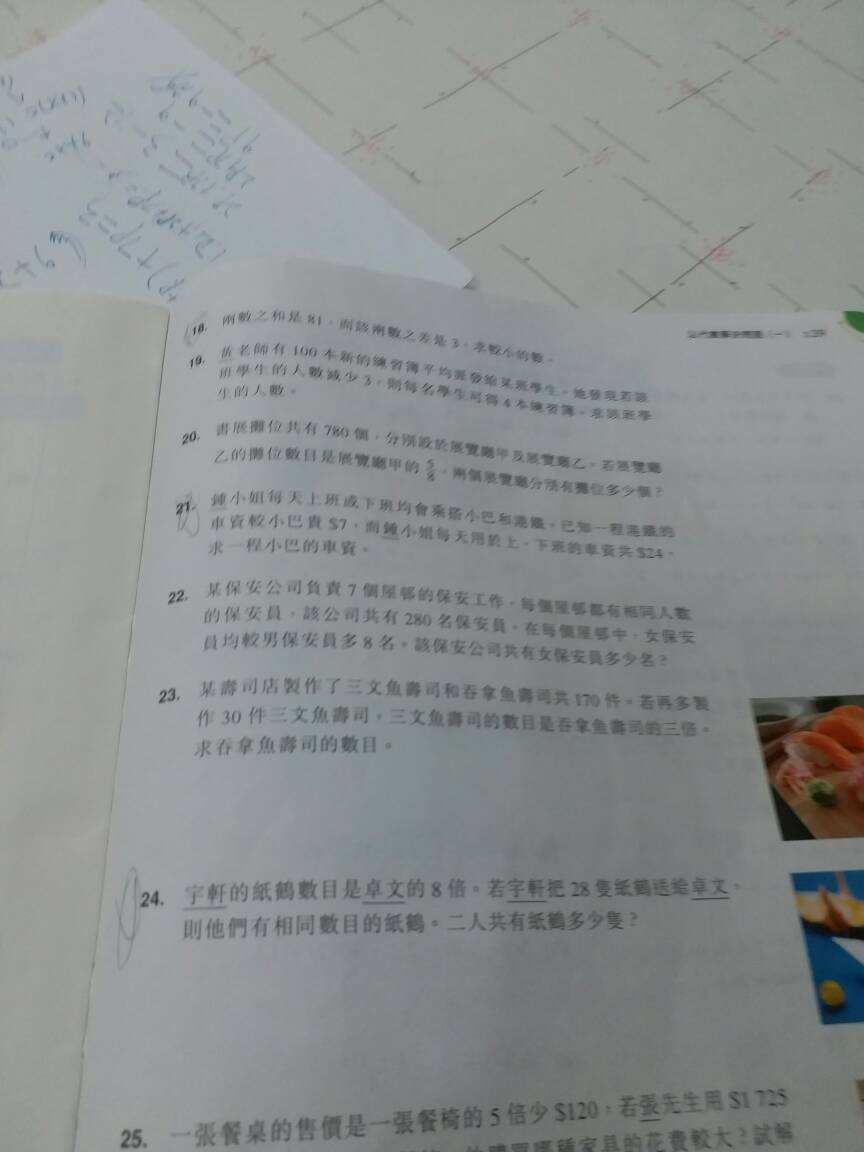 18. 兩數之和是 81，而該兩數之差是 3，求較小的數。
19. 黃老師有 100 本新的練習簿平均派發給某班學生。她發現若該
班學生的人數減少 3，則每名學生可得 4 本練習簿。求該班學
生的人數。
20. 書展攤位共有 780 個，分別設於展覽廳甲及展覽廳乙。若展覽廳
乙的攤位數目是展覽廳甲的 5/8，兩個展覽廳分別有攤位多少個？
21. 鍾小姐每天上班或下班均會乘搭小巴和港鐵。已知一程港鐵的
車資較小巴貴 $7，而鍾小姐每天用於上、下班的車資共 $24。
求一程小巴的車資。
22. 某保安公司負責 7 個屋邨的保安工作，每個屋邨都有相同人數
的保安員，該公司共有 280 名保安員。在每個屋邨中，女保安
員均較男保安員多 8 名。該保安公司共有女保安員多少名？
23. 某壽司店製作了三文魚壽司和吞拿魚壽司共 170 件。若再多製
作 30 件三文魚壽司，三文魚壽司的數目是吞拿魚壽司的三倍。
求吞拿魚壽司的數目。
24. 宇軒的紙鶴數目是卓文的 8 倍。若宇軒把 28 隻紙鶴送給卓文，
則他們有相同數目的紙鶴。二人共有紙鶴多少隻？
25. 一張餐桌的售價是一張餐椅的 5 倍少 $120，若張先生用 $1 725
購買哪種家具的花費較大？試解